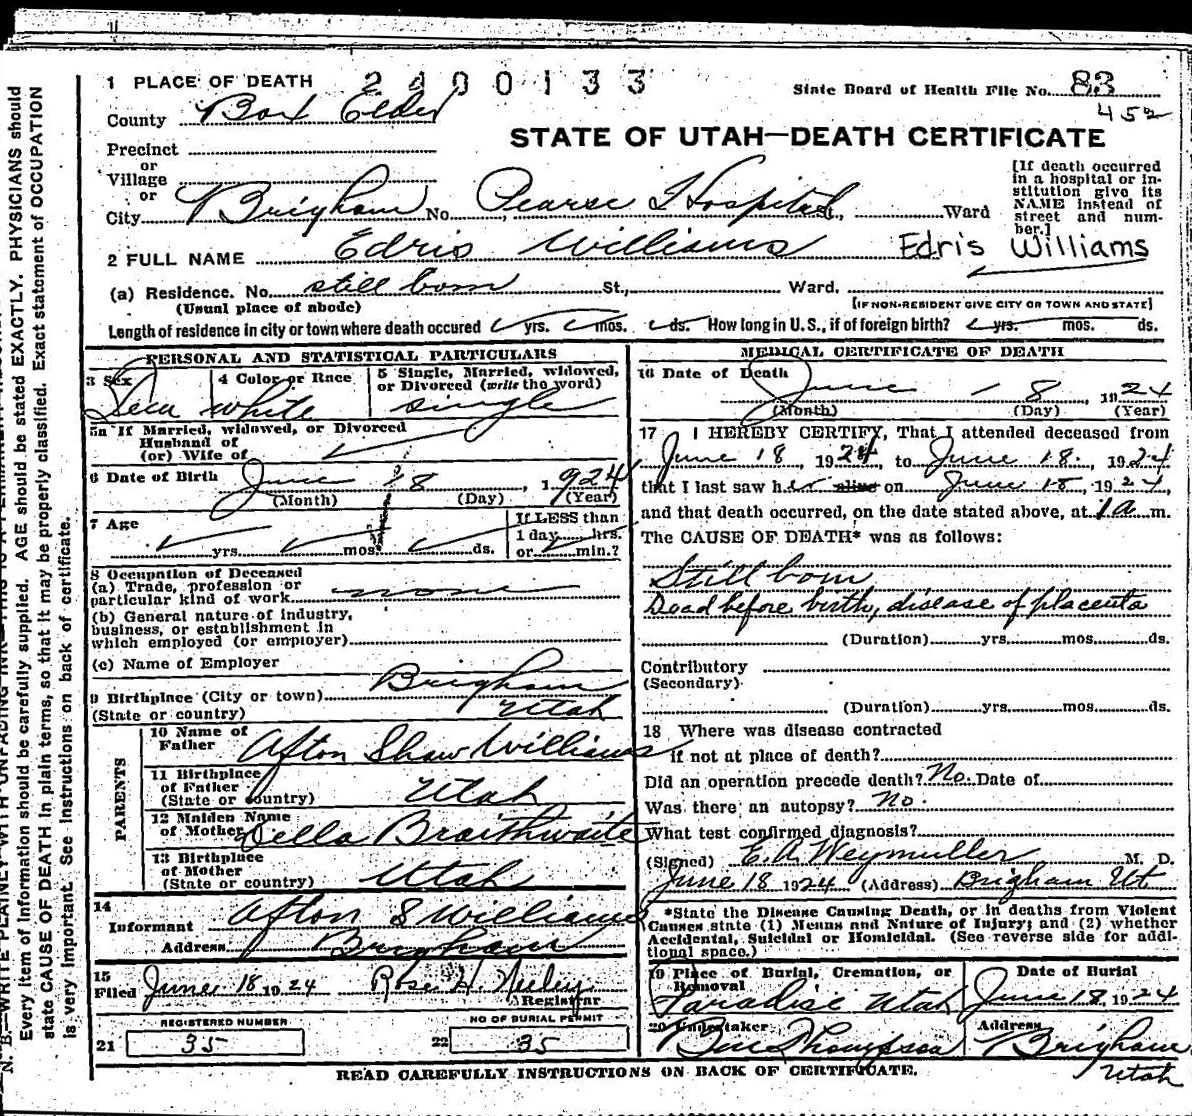 1 PLACE OF DEATH 2400133 State Board of Health File No. 83
452
County Box Elder
STATE OF UTAH—DEATH CERTIFICATE
Precinct
or
Village
or
City Brigham No. Pearse Hospital St., Ward
[If death occurred
in a hospital or in-
stitution give its
NAME instead of
street and num-
ber.]
2 FULL NAME Edris Williams Edris Williams
(a) Residence. No. still born St., Ward.
(Usual place of abode) [IF NON-RESIDENT GIVE CITY OR TOWN AND STATE]
Length of residence in city or town where death occured yrs. mos. ds. How long in U. S., if of foreign birth? yrs. mos. ds.
PERSONAL AND STATISTICAL PARTICULARS
3 Sex Fem
4 Color or Race white
5 Single, Married, widowed,
or Divorced (write the word)
single
5a If Married, widowed, or Divorced
Husband of
(or) Wife of
6 Date of Birth June 18, 1924
(Month) (Day) (Year)
7 Age yrs. mos. ds.
If LESS than
1 day hrs.
or min.?
8 Occupation of Deceased
(a) Trade, profession or
particular kind of work none
(b) General nature of industry,
business, or establishment in
which employed (or employer)
(c) Name of Employer
9 Birthplace (City or town) Brigham
(State or country) Utah
PARENTS
10 Name of
Father Afton Shaw Williams
11 Birthplace
of Father
(State or country) Utah
12 Maiden Name
of Mother Della Braithwaite
13 Birthplace
of Mother
(State or country) Utah
14
Informant Afton S Williams
Address Brigham
15
Filed June 18 1924 Rose H. Neeley
Registrar
REGISTERED NUMBER NO OF BURIAL PERMIT
21 35 22 35
MEDICAL CERTIFICATE OF DEATH
16 Date of Death
June 18, 1924
(Month) (Day) (Year)
17 I HEREBY CERTIFY, That I attended deceased from
June 18, 1924, to June 18, 1924
that I last saw her alive on June 18, 1924,
and that death occurred, on the date stated above, at 1 a m.
The CAUSE OF DEATH* was as follows:
Still born
Dead before birth, disease of placenta
(Duration) yrs. mos. ds.
Contributory
(Secondary)
(Duration) yrs. mos. ds.
18 Where was disease contracted
if not at place of death?
Did an operation precede death? No. Date of
Was there an autopsy? no.
What test confirmed diagnosis?
(Signed) E. A. Weymuller M. D.
June 18 1924 (Address) Brigham Ut
*State the Disease Causing Death, or in deaths from Violent
Causes state (1) Means and Nature of Injury; and (2) whether
Accidental, Suicidal or Homicidal. (See reverse side for addi-
tional space.)
19 Place of Burial, Cremation, or
Removal
Paradise Utah
Date of Burial
June 18, 1924
20 Undertaker
Ben Thompson
Address
Brigham
Utah
READ CAREFULLY INSTRUCTIONS ON BACK OF CERTIFICATE.
Every item of information should be carefully supplied. AGE should be stated EXACTLY. PHYSICIANS should
state CAUSE OF DEATH in plain terms, so that it may be properly classified. Exact statement of OCCUPATION
is very important. See instructions on back of certificate.